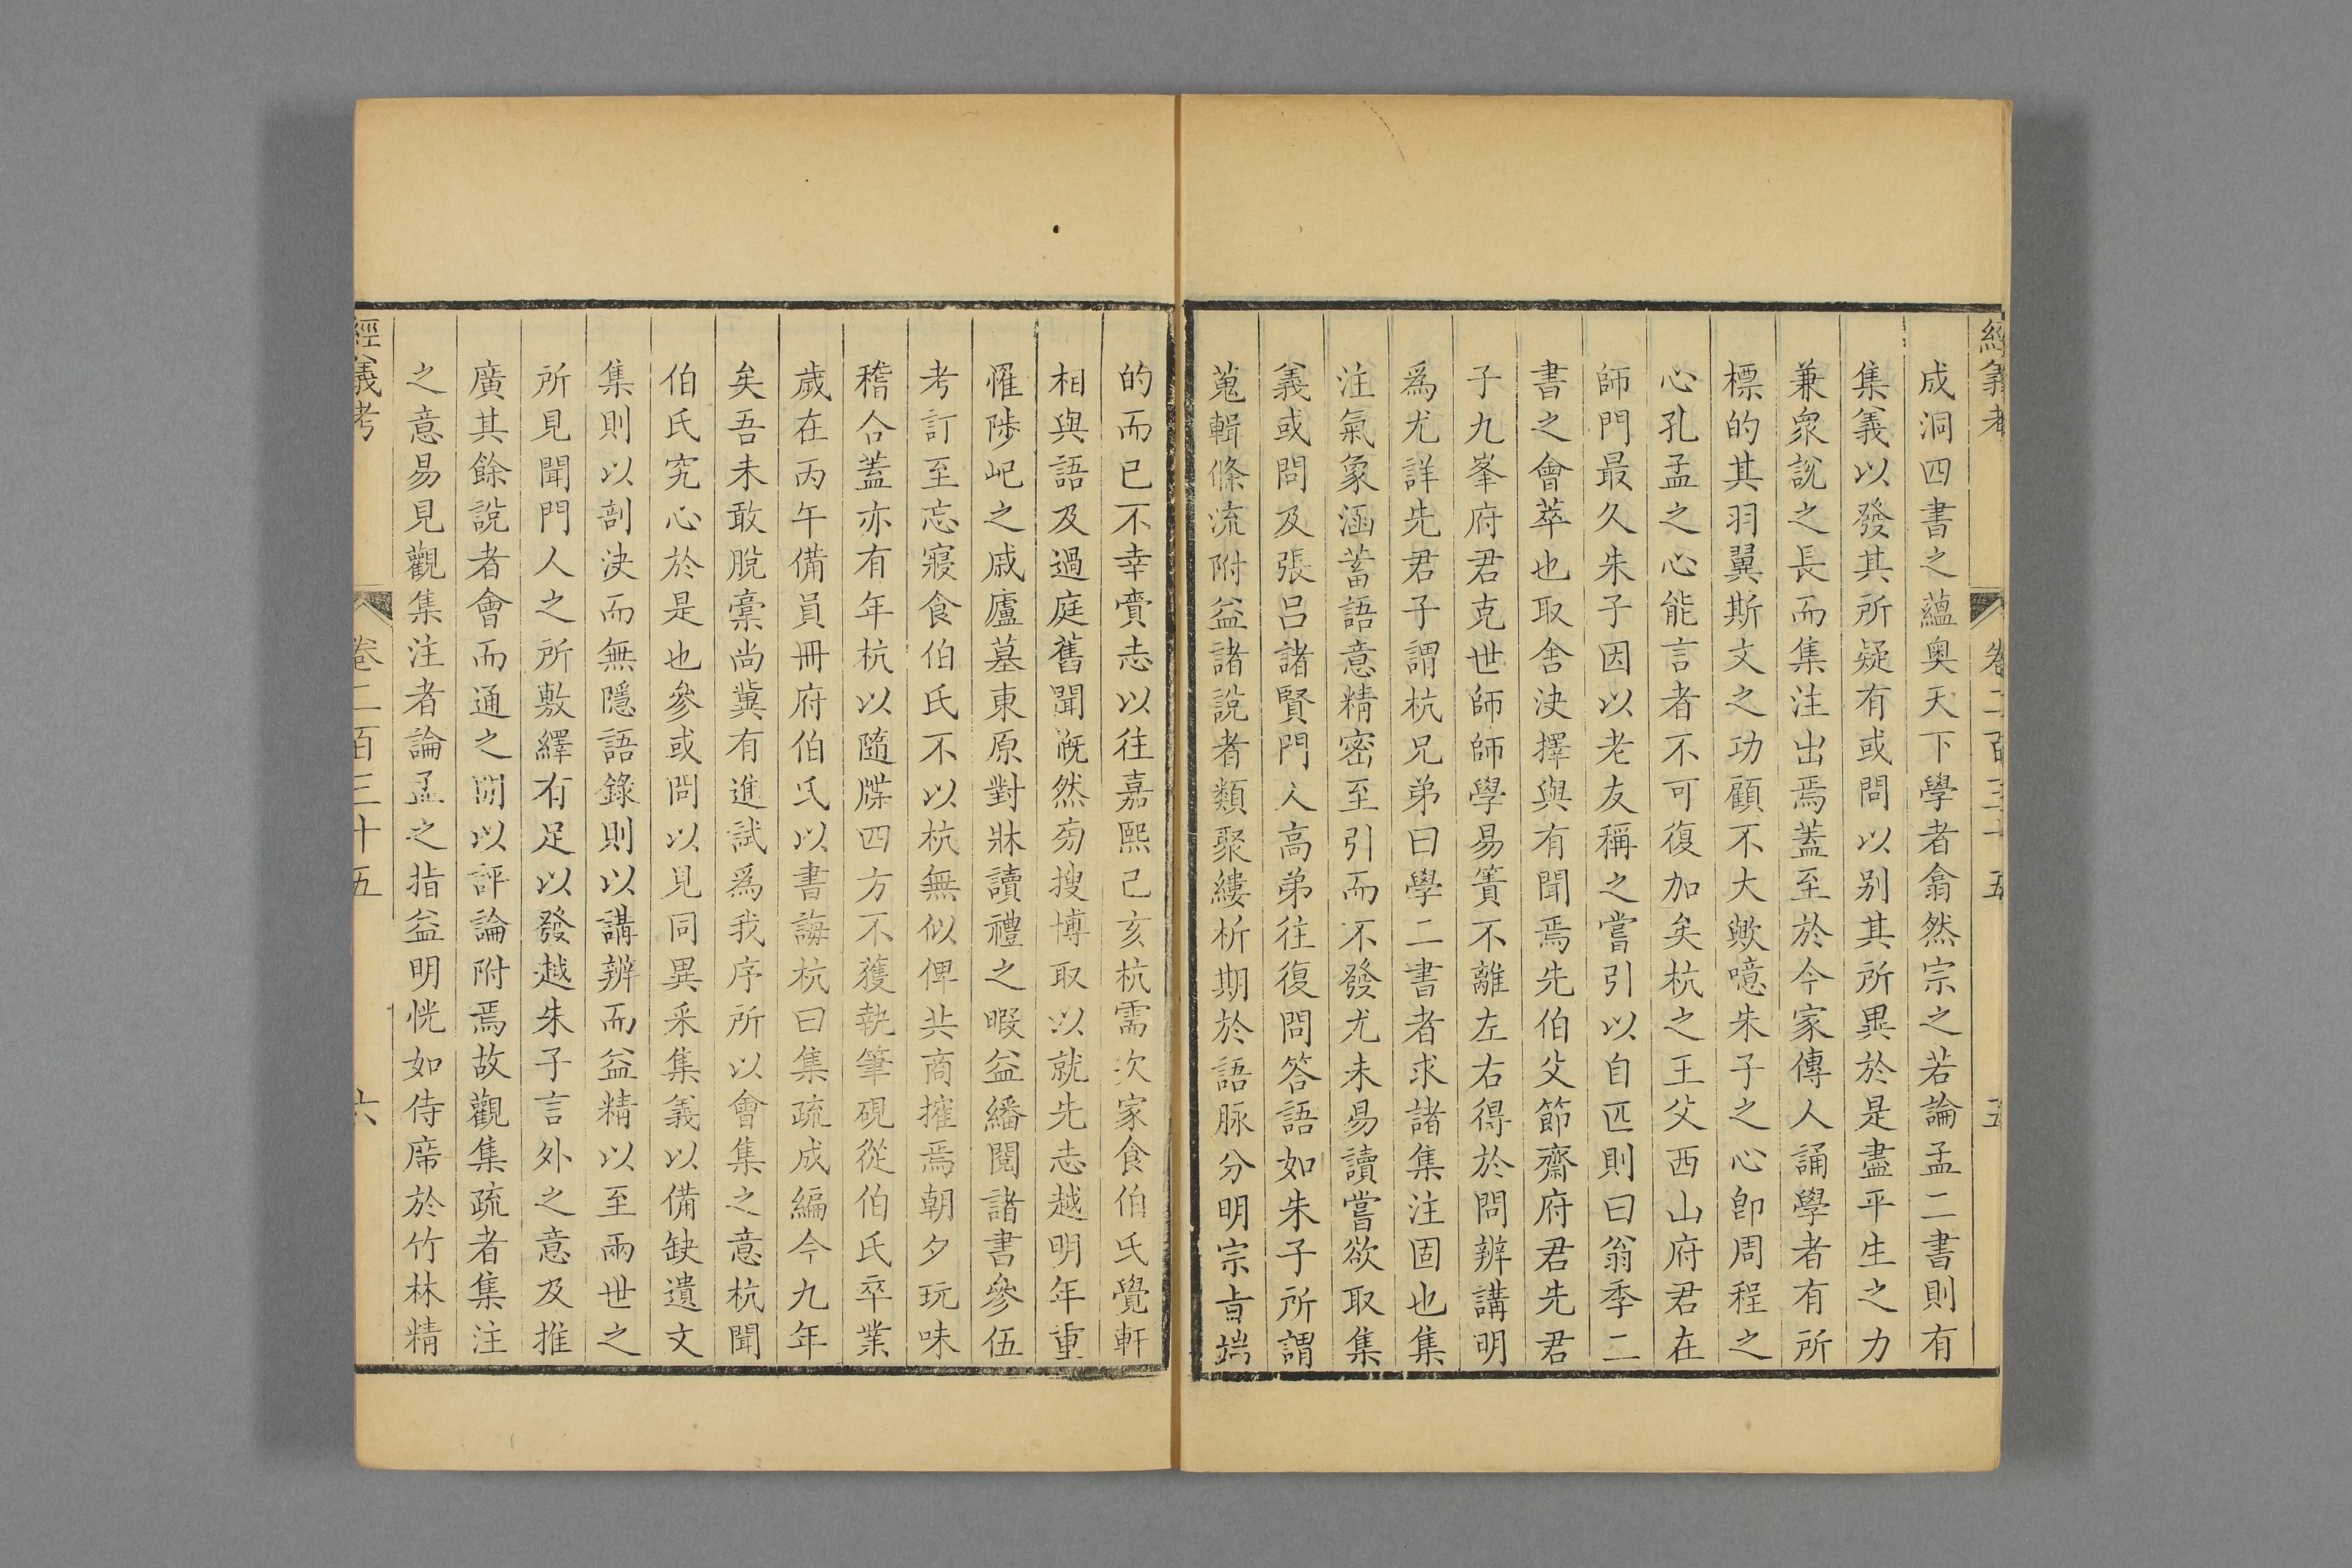 經義考 卷二百三十五 五
成洞四書之蘊奧天下學者翕然宗之若論孟二書則有
集義以發其所疑有或問以别其所異於是盡平生之力
兼衆說之長而集注出焉蓋至於今家傳人誦學者有所
標的其羽翼斯文之功顧不大歟噫朱子之心卽周程之
心孔孟之心心能言者不可復加矣杭之王父西山府君在
師門最久朱子因以老友稱之嘗引以自匹則曰翁季二
書之會萃也取舍決擇與有聞焉先伯父節齋府君先君
子九峯府君克世師師學易簀不離左右得於問辨講明
爲尤詳先君子謂杭兄弟曰學二書者求諸集注固也集
注氣象涵蓄語意精密至引而不發尤未易讀嘗欲取集
義或問及張呂諸賢門人高弟往復問答語如朱子所謂
蒐輯條流附益諸說者類聚縷析期於語脉分明宗㫖端
的而已不幸賫志以往嘉熙己亥杭需次家食伯氏覺軒
相與語及過庭舊聞慨然旁搜博取以就先志越明年重
罹陟屺之戚廬墓東原對牀讀禮之暇益繙閱諸書參伍
考訂至忘寢食伯氏不以杭無似俾共商搉焉朝夕玩味
稽合蓋亦有年杭以隨牒四方不獲執筆硯從伯氏卒業
歲在丙午備員冊府伯氏以書誨杭曰集疏成編今九年
矣吾未敢脫稾尚冀有進試爲我序所以會集之意杭聞
伯氏究心於是也參或問以見同異采集義以備缺遺文
集則以剖決而無隱語錄則以講辨而益精以至兩世之
所見聞門人之所敷繹有足以發越朱子言外之意及推
廣其餘說者會而通之間以評論附焉故觀集疏者集注
之意易見觀集注者論孟之指益明恍如侍席於竹林精
經義考 卷二百三十五 六